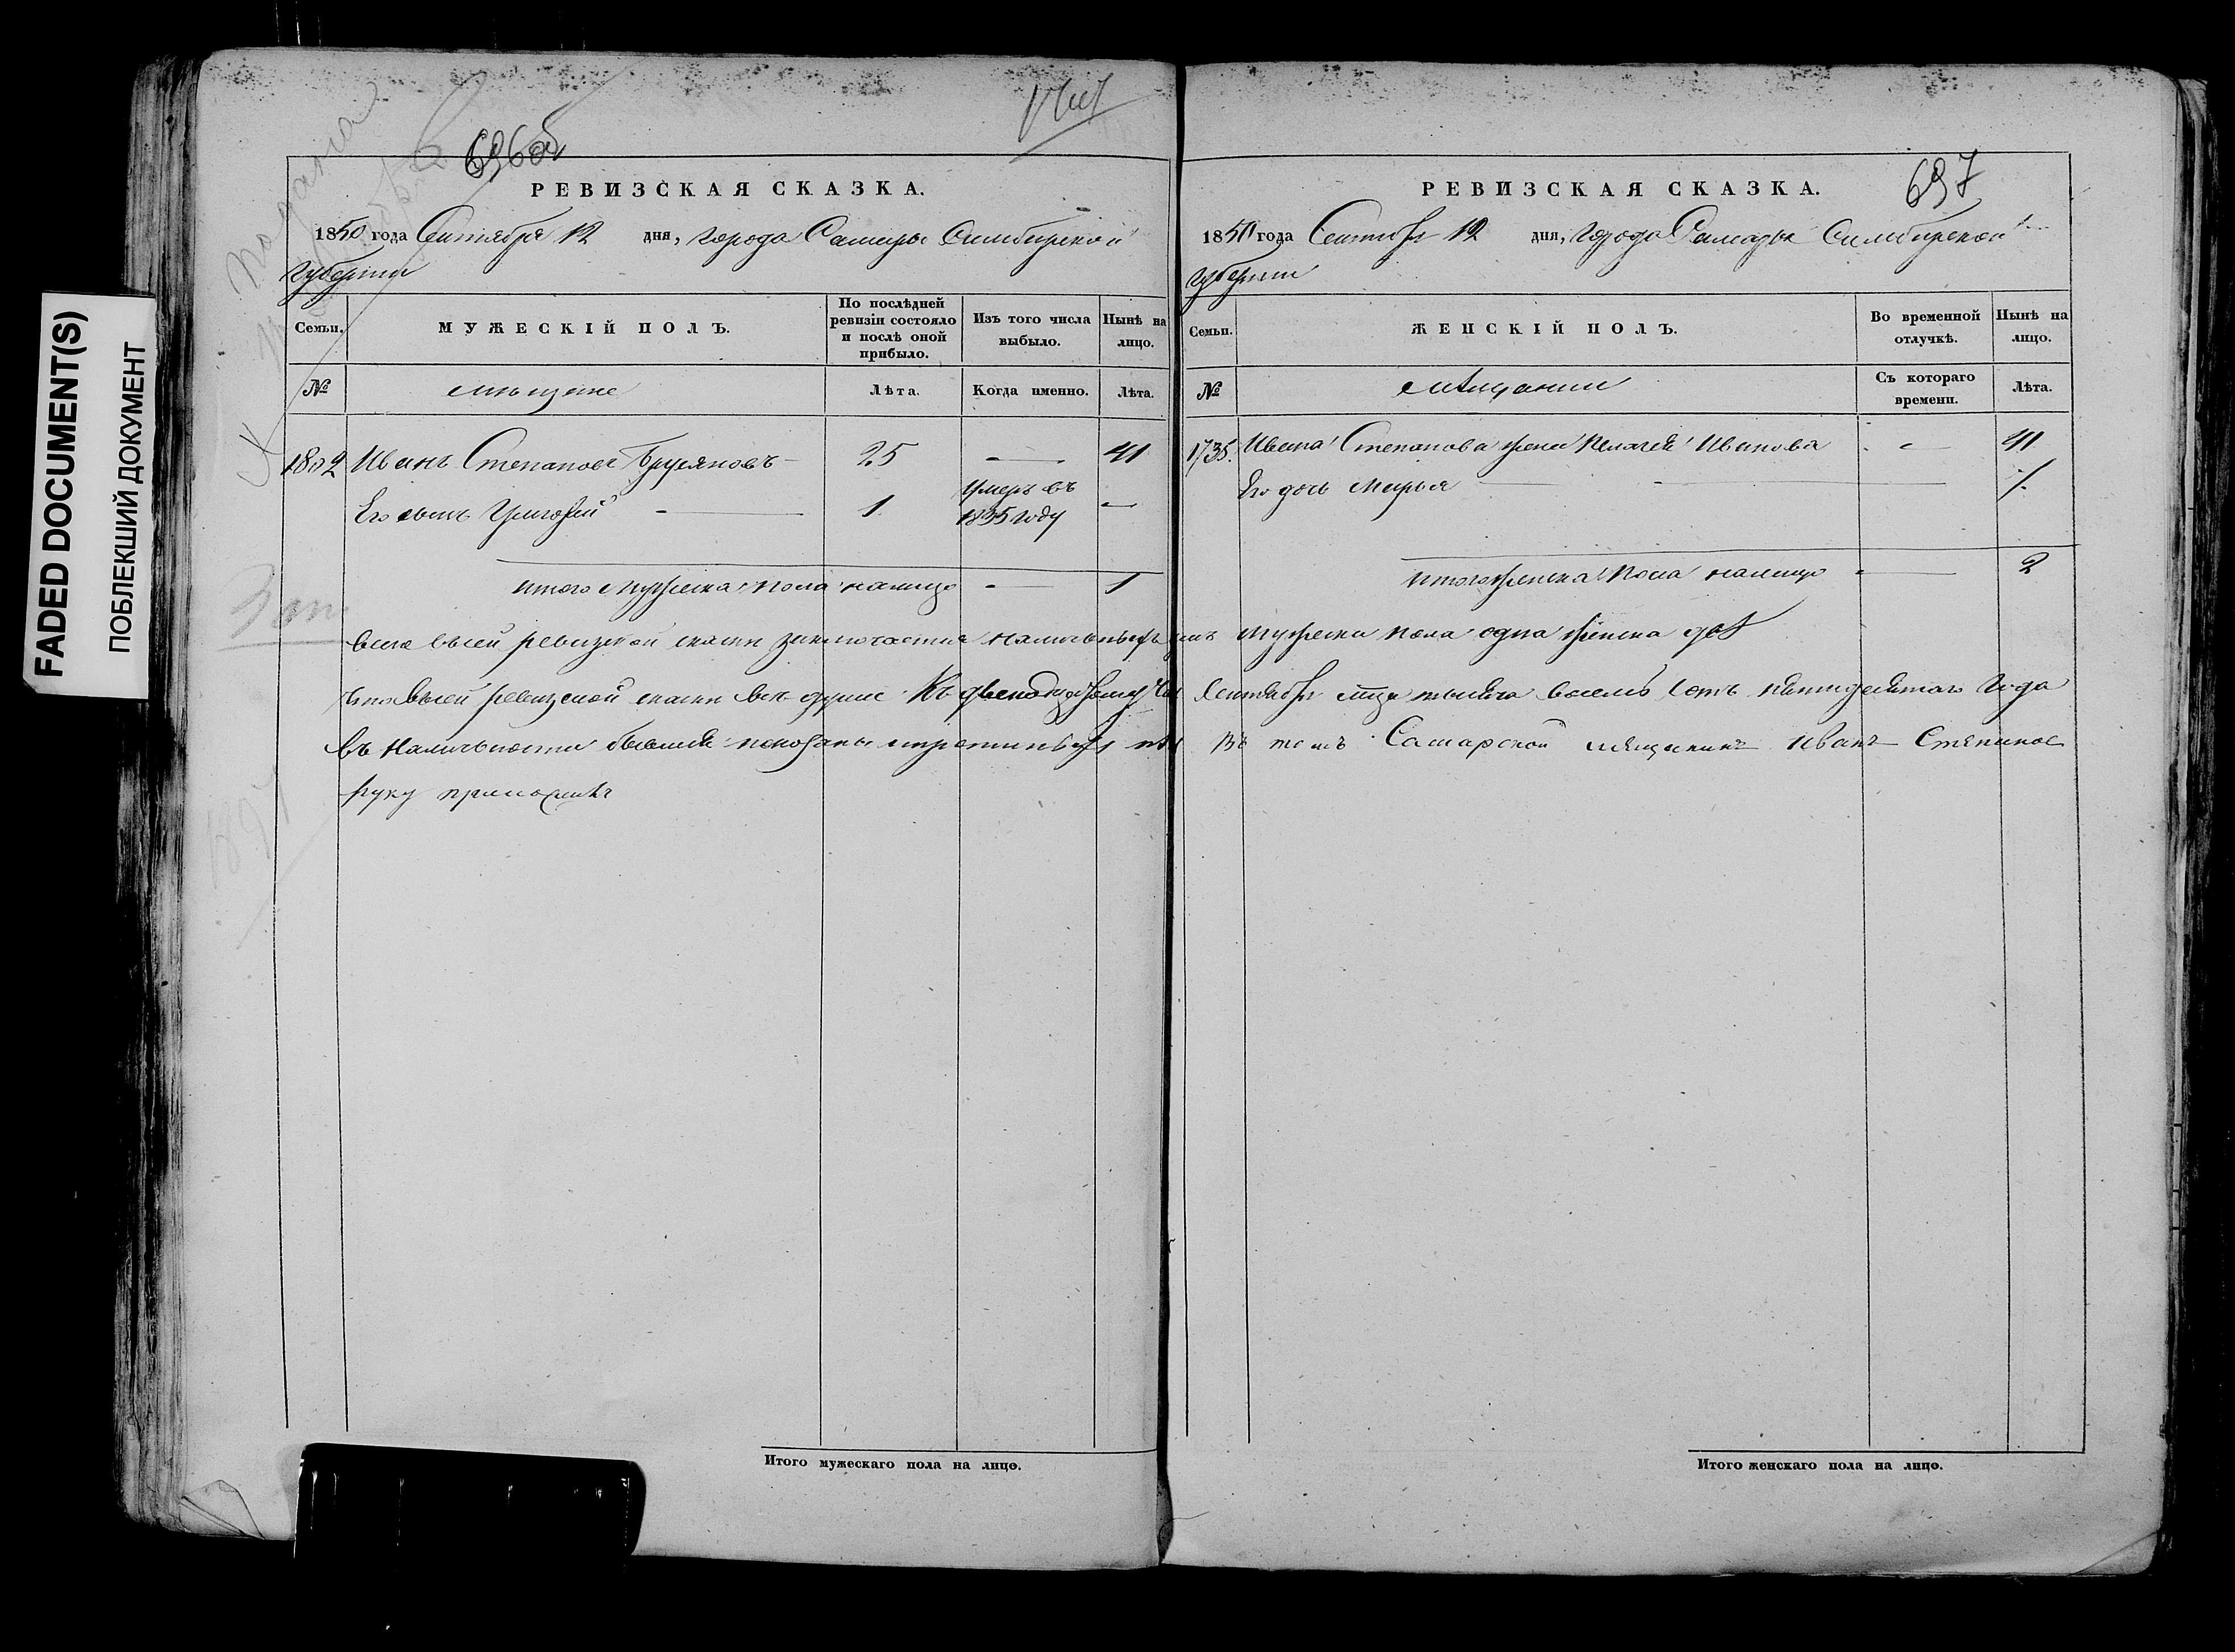 FADED DOCUMENT(S)
ПОБЛЕКШИЙ ДОКУМЕНТ
Подана
696об
РЕВИЗСКАЯ СКАЗКА.
1850 года Сентября 12 дня, города Самары Симбирской
губернии
Семьи.
МУЖЕСКІЙ ПОЛЪ.
По послѣдней ревизіи состояло и послѣ оной прибыло.
Изъ того числа выбыло.
Нынѣ на лицо.
№
мещане
Лѣта.
Когда именно.
Лѣта.
Иванъ Степановъ Брусяновъ 25 — 41
Умеръ въ
Его сынъ Григорій — 1 —
1835 году
итого мужеска пола налицо — 1
Итого мужескаго пола на лицо.
697
РЕВИЗСКАЯ СКАЗКА.
1850 года Сентября 12 дня, города Самары Симбирской
губернии
Семьи.
ЖЕНСКІЙ ПОЛЪ.
Во временной отлучкѣ.
Нынѣ на лицо.
№
мещанки
Съ котораго времени.
Лѣта.
1735. Ивана Степанова жена Пелагея Иванова — 41
Его дочь Марья — 1.
итого женска пола налицо — 2
всего в сей ревизской сказки заключается наличных душ мужеска пола одна женска две
что в сей ревизской сказки все души къ двенадцатому Сентября мца тысяча восемь сотъ пятидесятаго года
въ наличности бывшие показаны въ томъ Самарской мещанинъ Иванъ Степанов
руку приложилъ
Итого женскаго пола на лицо.